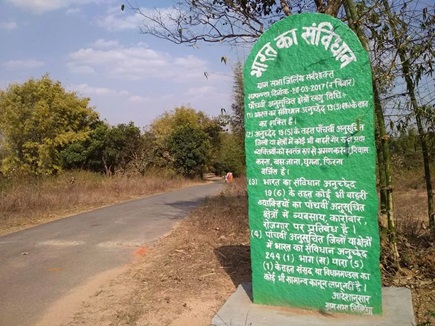 भारत का संविधान
ग्राम सभा जिलिंगा सर्वशक्त
दिनांक - 14-03-2017 (रविवार)
पाँचवीं अनुसूचित क्षेत्रों लागू तिथि -
(1) भारत का संविधान अनुच्छेद 13(3)क के तहत
का शक्ति है।
(2) अनुच्छेद 19(5) के तहत पाँचवीं अनुसूचित
जिलों या क्षेत्रों में कोई भी बाहरी गैर रूढ़ी प्रथा
व्यक्तियों को स्वतंत्र रूप से भ्रमण करना, निवास
करना, बस जाना, घुमना, फिरना
वर्जित है।
(3) भारत का संविधान अनुच्छेद
19(6) के तहत कोई भी बाहरी
व्यक्तियों का पाँचवीं अनुसूचित
क्षेत्रों में व्यवसाय, कारोबार,
रोजगार पर प्रतिबंध है।
(4) पाँचवीं अनुसूचित जिलों या क्षेत्रों
में भारत का संविधान अनुच्छेद
244 (1) भाग (ख) धारा 5
(1) के तहत संसद या विधानमण्डल का
कोई भी सामान्य कानून लागू नहीं है।
आदेशानुसार
ग्राम सभा